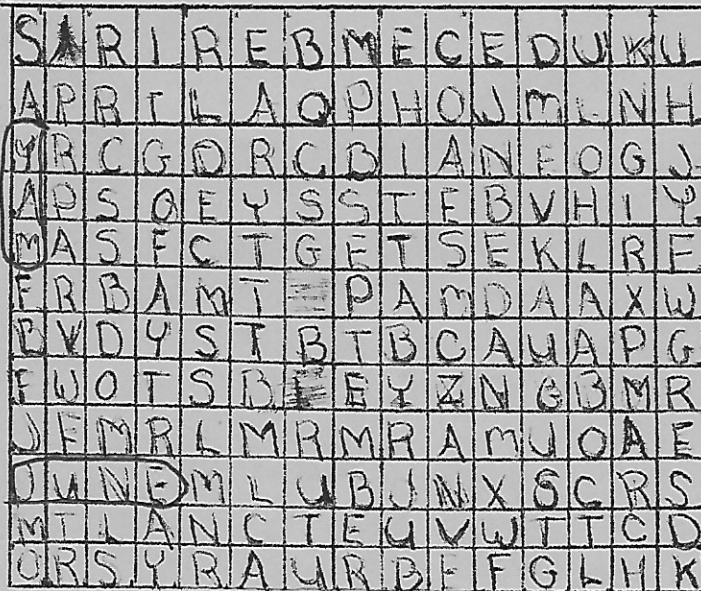 S A R I R E B M E C E D U K U
A P R I L A Q P H O J M L N H
Y R C G D R C B I A N E O G J
A P S O E Y S S T E B V H I Y
M A S F C T G E T S E K L R E
F R B A M T P A M D A A X W
B V D Y S T B T B C A U A P G
F W O T S B E Y Z N G B M R
J E M R L M R M R A M J O A E
J U N E M L U B J N X S C R S
M T L A N C T E U V W T T C D
O R S Y R A U R B E F G L H K